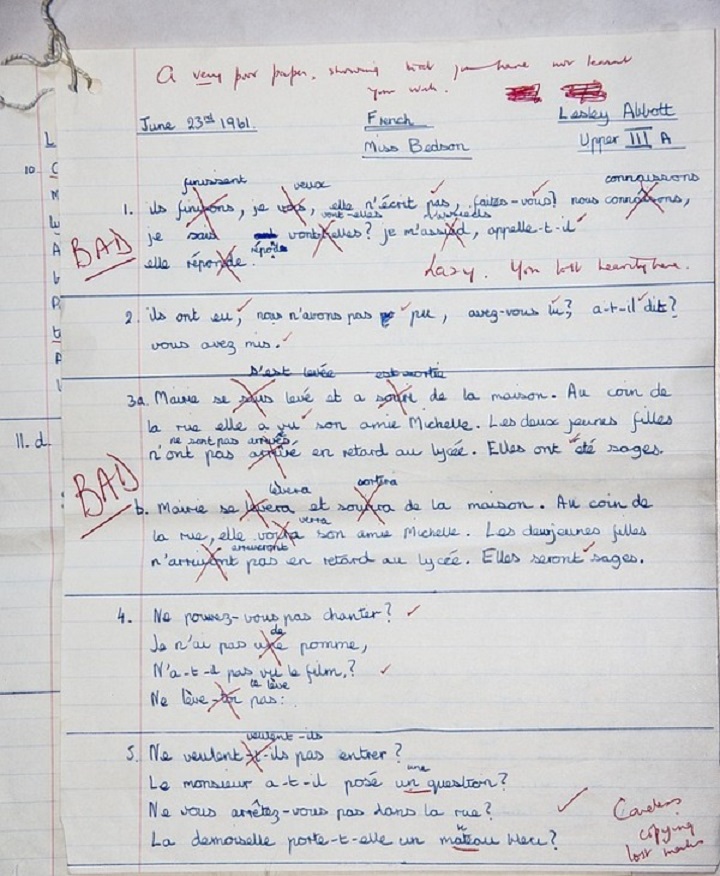 A very poor paper, showing that you have not learnt
your work.
June 23rd 1961. French Lesley Abbott
Miss Bedson Upper III A
finissent veux connaissons
1. ils finirons, je vas, elle n'écrit pas, faites-vous? nous connaîtrons,
vont-elles m'assieds
je sais vont-elles? je m'assied, appelle-t-il
BAD
répond
elle réponde.
Lazy. You lost accents here.
2. ils ont eu, nous n'avons pas pu, avez-vous lu? a-t-il dit?
vous avez mis.
s'est levée est sortie
3a. Mairie se suis levé et a souri de la maison. Au coin de
la rue elle a vu son amie Michelle. Les deux jeunes filles
ne sont pas arrivés
n'ont pas arrivé en retard au lycée. Elles ont été sages.
BAD
lèvera sortira
b. Mairie se levera et soutira de la maison. Au coin de
verra
la rue, elle voira son amie Michelle. Les deux jeunes filles
arriveront
n'arriuont pas en retard au lycée. Elles seront sages.
4. Ne pouvez-vous pas chanter?
de
Je n'ai pas une pomme,
N'a-t-il pas vu le film?
te lève
Ne lève-toi pas:
veulent-ils
5. Ne veulent-t-ils pas entrer?
une
Le monsieur a-t-il posé un question?
Ne vous arrêtez-vous pas dans la rue?
La demoiselle porte-t-elle un mateau bleu?
Careless
copying
lost marks
10.
11. d.